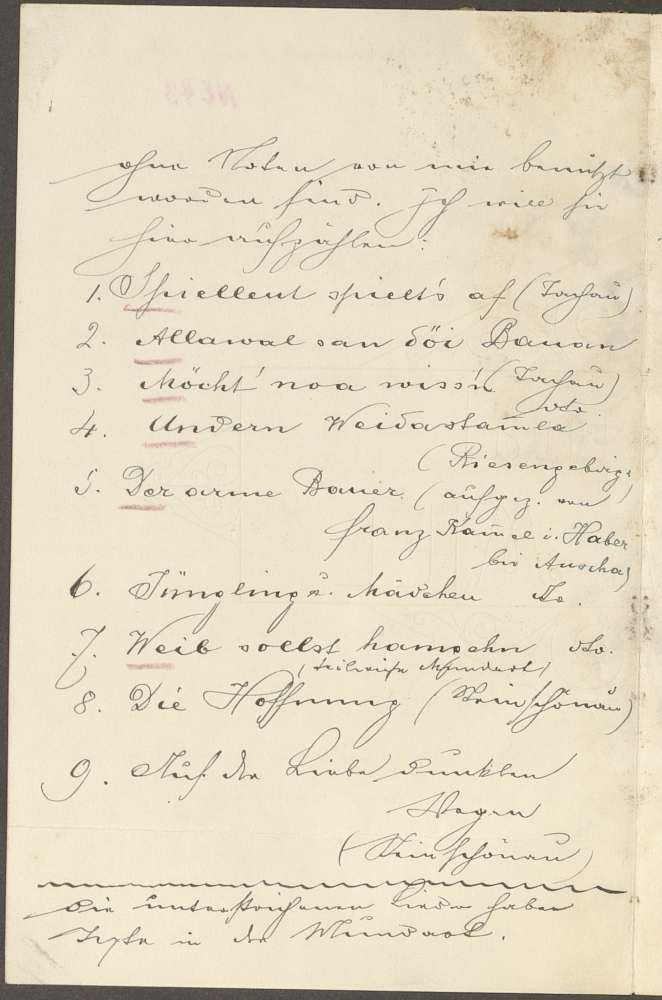 ohne Noten von mir benützt
worden sind. Ich will sie
hier aufzählen:
1. Spielleut spielt's af (Tachau)
2. Allawal san döi Bauan
3. Möcht' noa wiss'n (Tachau)
4. Undern Weidastamla dto.
(Riesengebirge)
5. Der arme Bauer. (aufgez. von
Franz Kaiml i. Haber
bei Auscha)
6. Jüngling u. Mädchen do.
7. Weib sollst hamgehn dto.
(teilweise Mundart)
8. Die Hoffnung (Steinschönau)
9. Auf der Liebe dunklen
Wegen
(Steinschönau)
Die unterstrichenen Lieder haben
Texte in der Mundart.